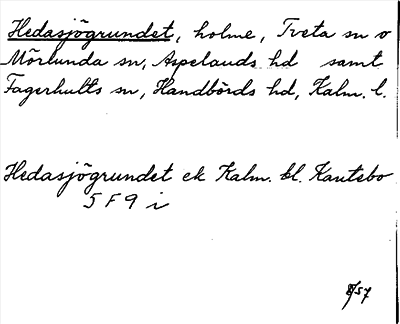 Hedasjögrundet, holme, Tveta sn o
Mörlunda sn, Aspelands hd samt
Fagerhults sn, Handbörds hd, Kalm. l.
Hedasjögrundet ek Kalm. bl. Kantebo
5 F 9 i
8/57